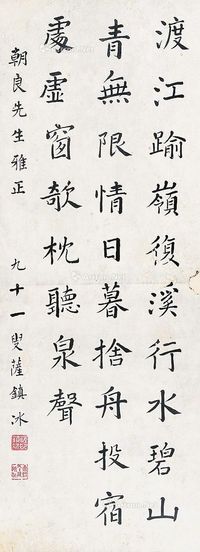 渡江踰嶺復溪行水碧山
青無限情日暮捨舟投宿
處虛窗欹枕聽泉聲
朝良先生雅正
九十一叟薩鎮冰